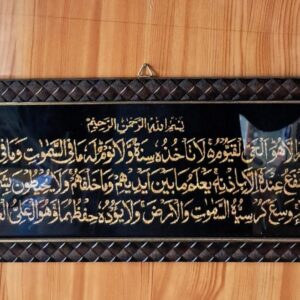 بِسْمِ اللهِ الرَّحْمٰنِ الرَّحِيْمِ
هُوَ الْحَيُّ الْقَيُّوْمُ ۚ لَا تَاْخُذُهٗ سِنَةٌ وَّلَا نَوْمٌ ؕ لَهٗ مَا فِى السَّمٰوٰتِ وَمَا فِى
عِنْدَهٗۤ اِلَّا بِاِذْنِهٖ ؕ يَعْلَمُ مَا بَيْنَ اَيْدِيْهِمْ وَمَا خَلْفَهُمْ ۚ وَلَا يُحِيْطُوْنَ
وَسِعَ كُرْسِيُّهُ السَّمٰوٰتِ وَالْاَرْضَ ۚ وَلَا يَئُوْدُهٗ حِفْظُهُمَا ۚ وَهُوَ الْعَلِىُّ